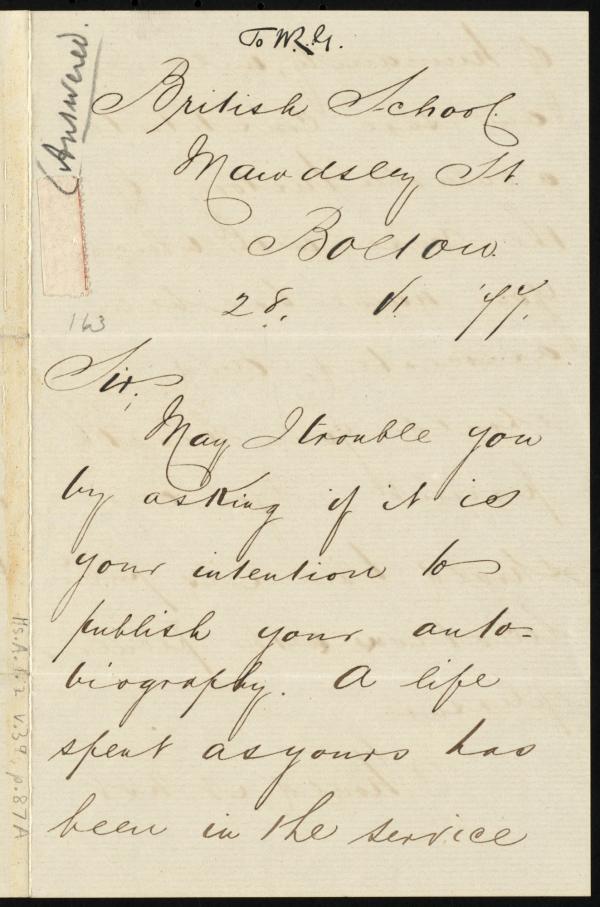 To W.L.G.
(Answered.
British School.
Mawdsley St.
Bolton.
28. VI. '77.
163
Sir,
May I trouble you
by asking if it is
your intention to
publish your auto=
biography. A life
spent as yours has
been in the service
Ms.A.1.2 v.39, p.87A